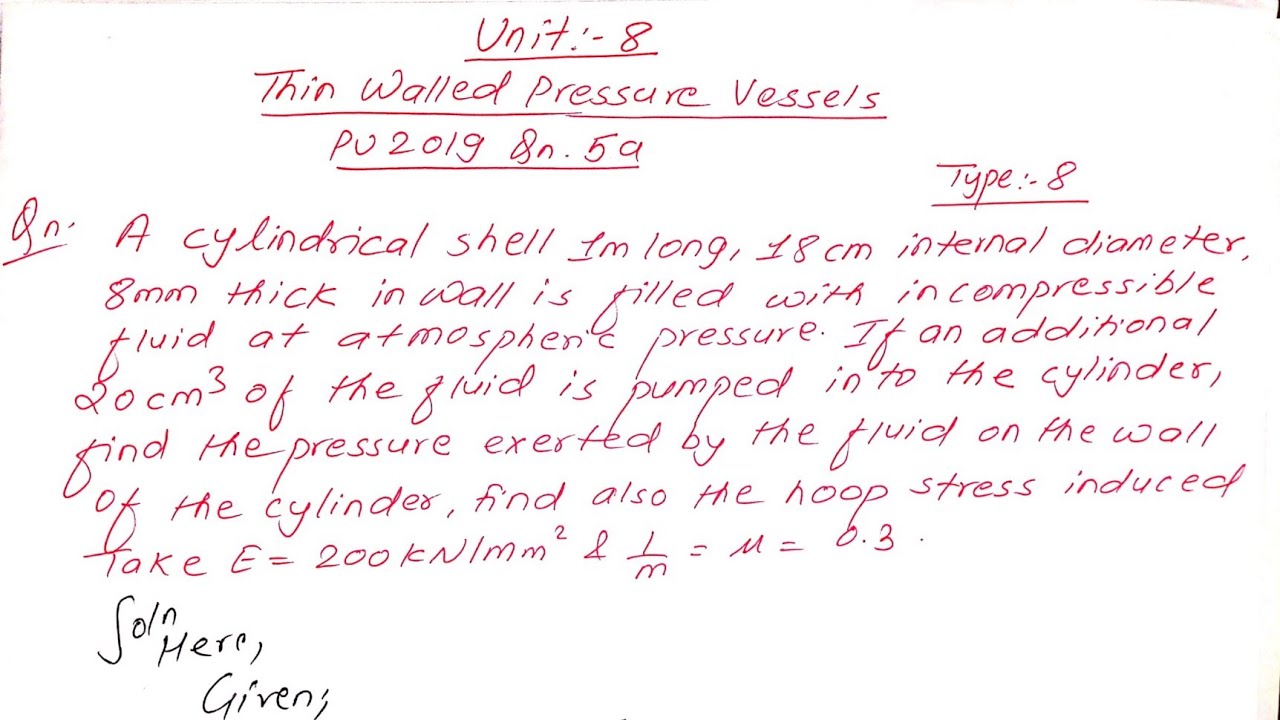 Unit:- 8
Thin Walled Pressure Vessels
PU 2019 Qn. 5a
Type:- 8
Qn. A cylindrical shell 1m long, 18 cm internal diameter,
8mm thick in wall is filled with incompressible
fluid at atmospheric pressure. If an additional
20cm³ of the fluid is pumped into the cylinder,
find the pressure exerted by the fluid on the wall
of the cylinder, find also the hoop stress induced
Take E = 200 kN/mm² & 1/m = μ = 0.3.
Soln
Here,
Given;